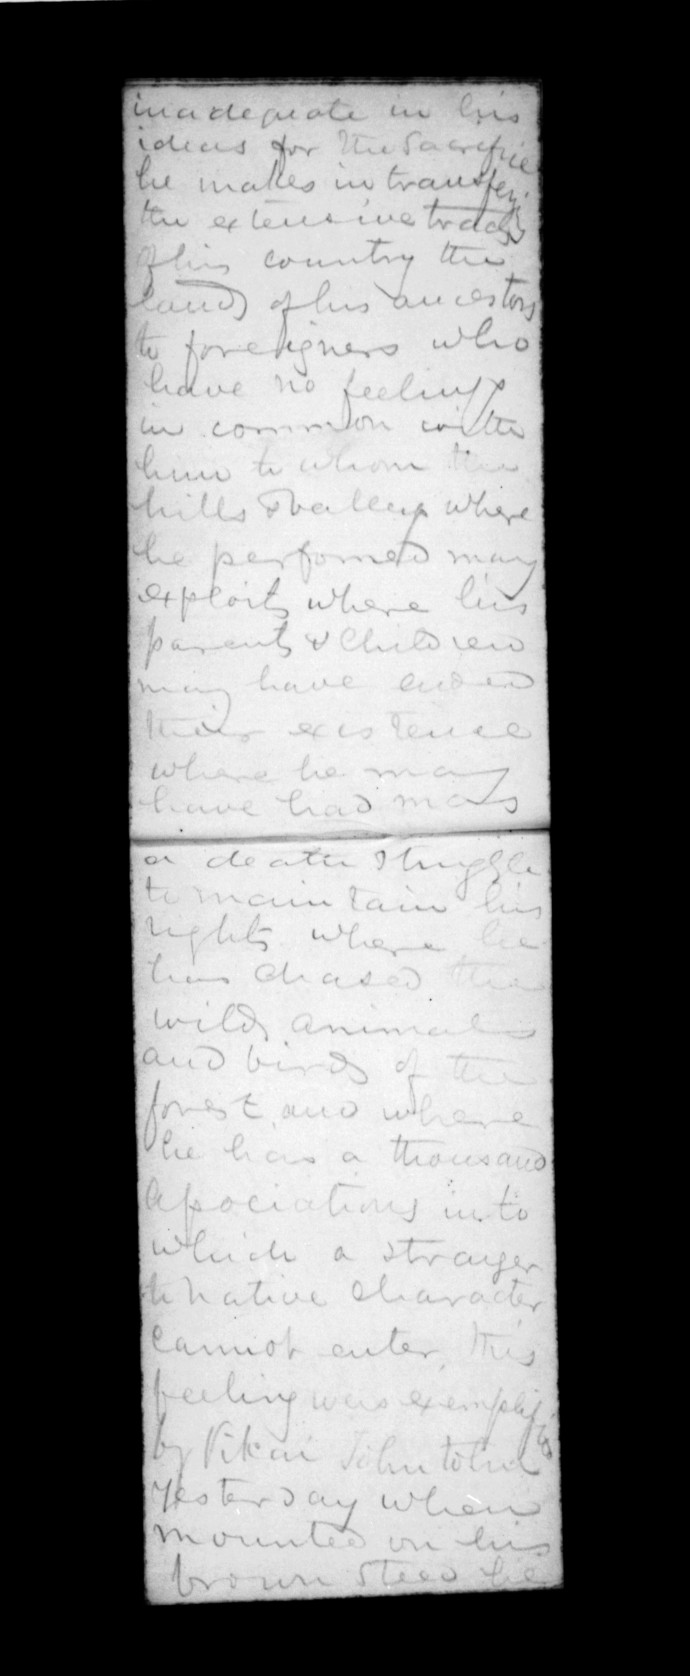 inadequate in his
ideas for the Sacrifice
he makes in transferring
the extensive tracts
of his country the
lands of his ancestors
to foreigners who
have no feelings
in common with
him to whom the
hills & valleys where
he performed many
exploits where his
parents & Children
may have ended
their existence
where he may
have had many
a death struggle
to maintain his
rights where he
has chased the
wild animals
and birds of the
forest and where
he has a thousand
Associations into
which a stranger
to native character
cannot enter, this
feeling was exemplified
by Pikai
yesterday when
mounted on his
brown Steed he